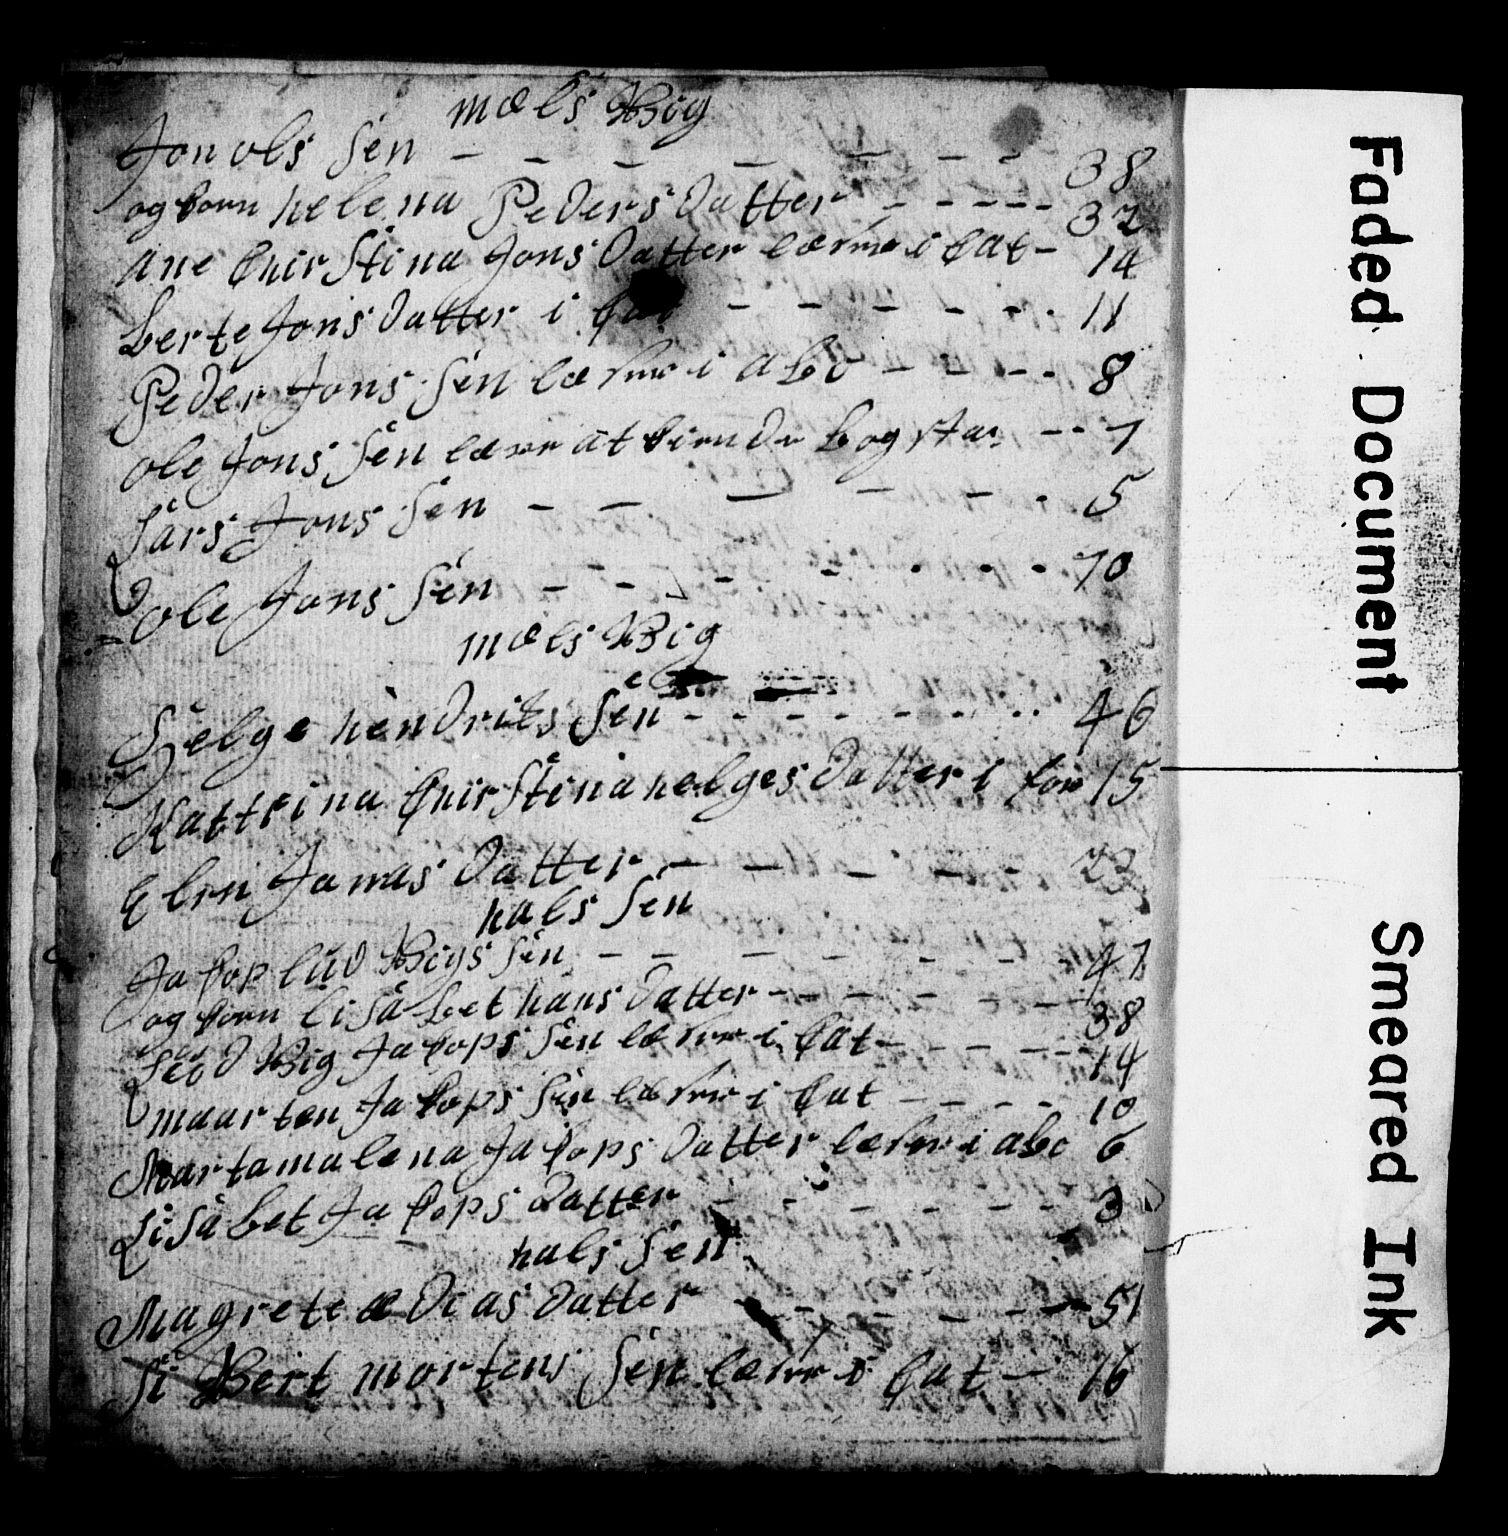 mæls Wig
Jon ols Sen - - - - - - - 38
og konn helena Peders Datter - - - - - 32
Ane khirStina Jons Datter lærnr i kat - 14
berte Jons Datter i kat - - - - - - 11
Peder Jons Sen lærnr i abc - - - - 8
ole Jons Sen lærer at kiende bogstar -- 7
Lars Jons Sen - - - - - - 5
ole Jons Sen - - - - - - - 70
mæls Wig
Helge hendriks Sen - - - - - - - - 46
Kattrina khirStina helges Datter i for 15
Elen Jonnas Datter - - - - - 23
hals Sen
Jakop lud Wigs Sen - - - - - - - 47
og konn lisabet hans Datter - - - - - - 38
Lud Wig Jakops Sen lærnr i kat - - - - - 14
maarten Jakops Sen lærnr i kat - - - - 10
Marta malena Jakops Datter lærnr i abc 6
Lisabet Jakops Datter - - - - - - 3
hals Sen
Magrete ædias Datter - - - - - 51
Si Wert mortens Sen lærnr i kat - 16
Faded Document
Smeared Ink